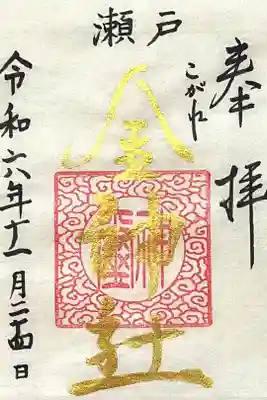 奉拝
瀬戸
こがね
金神社
令和六年十一月二四日